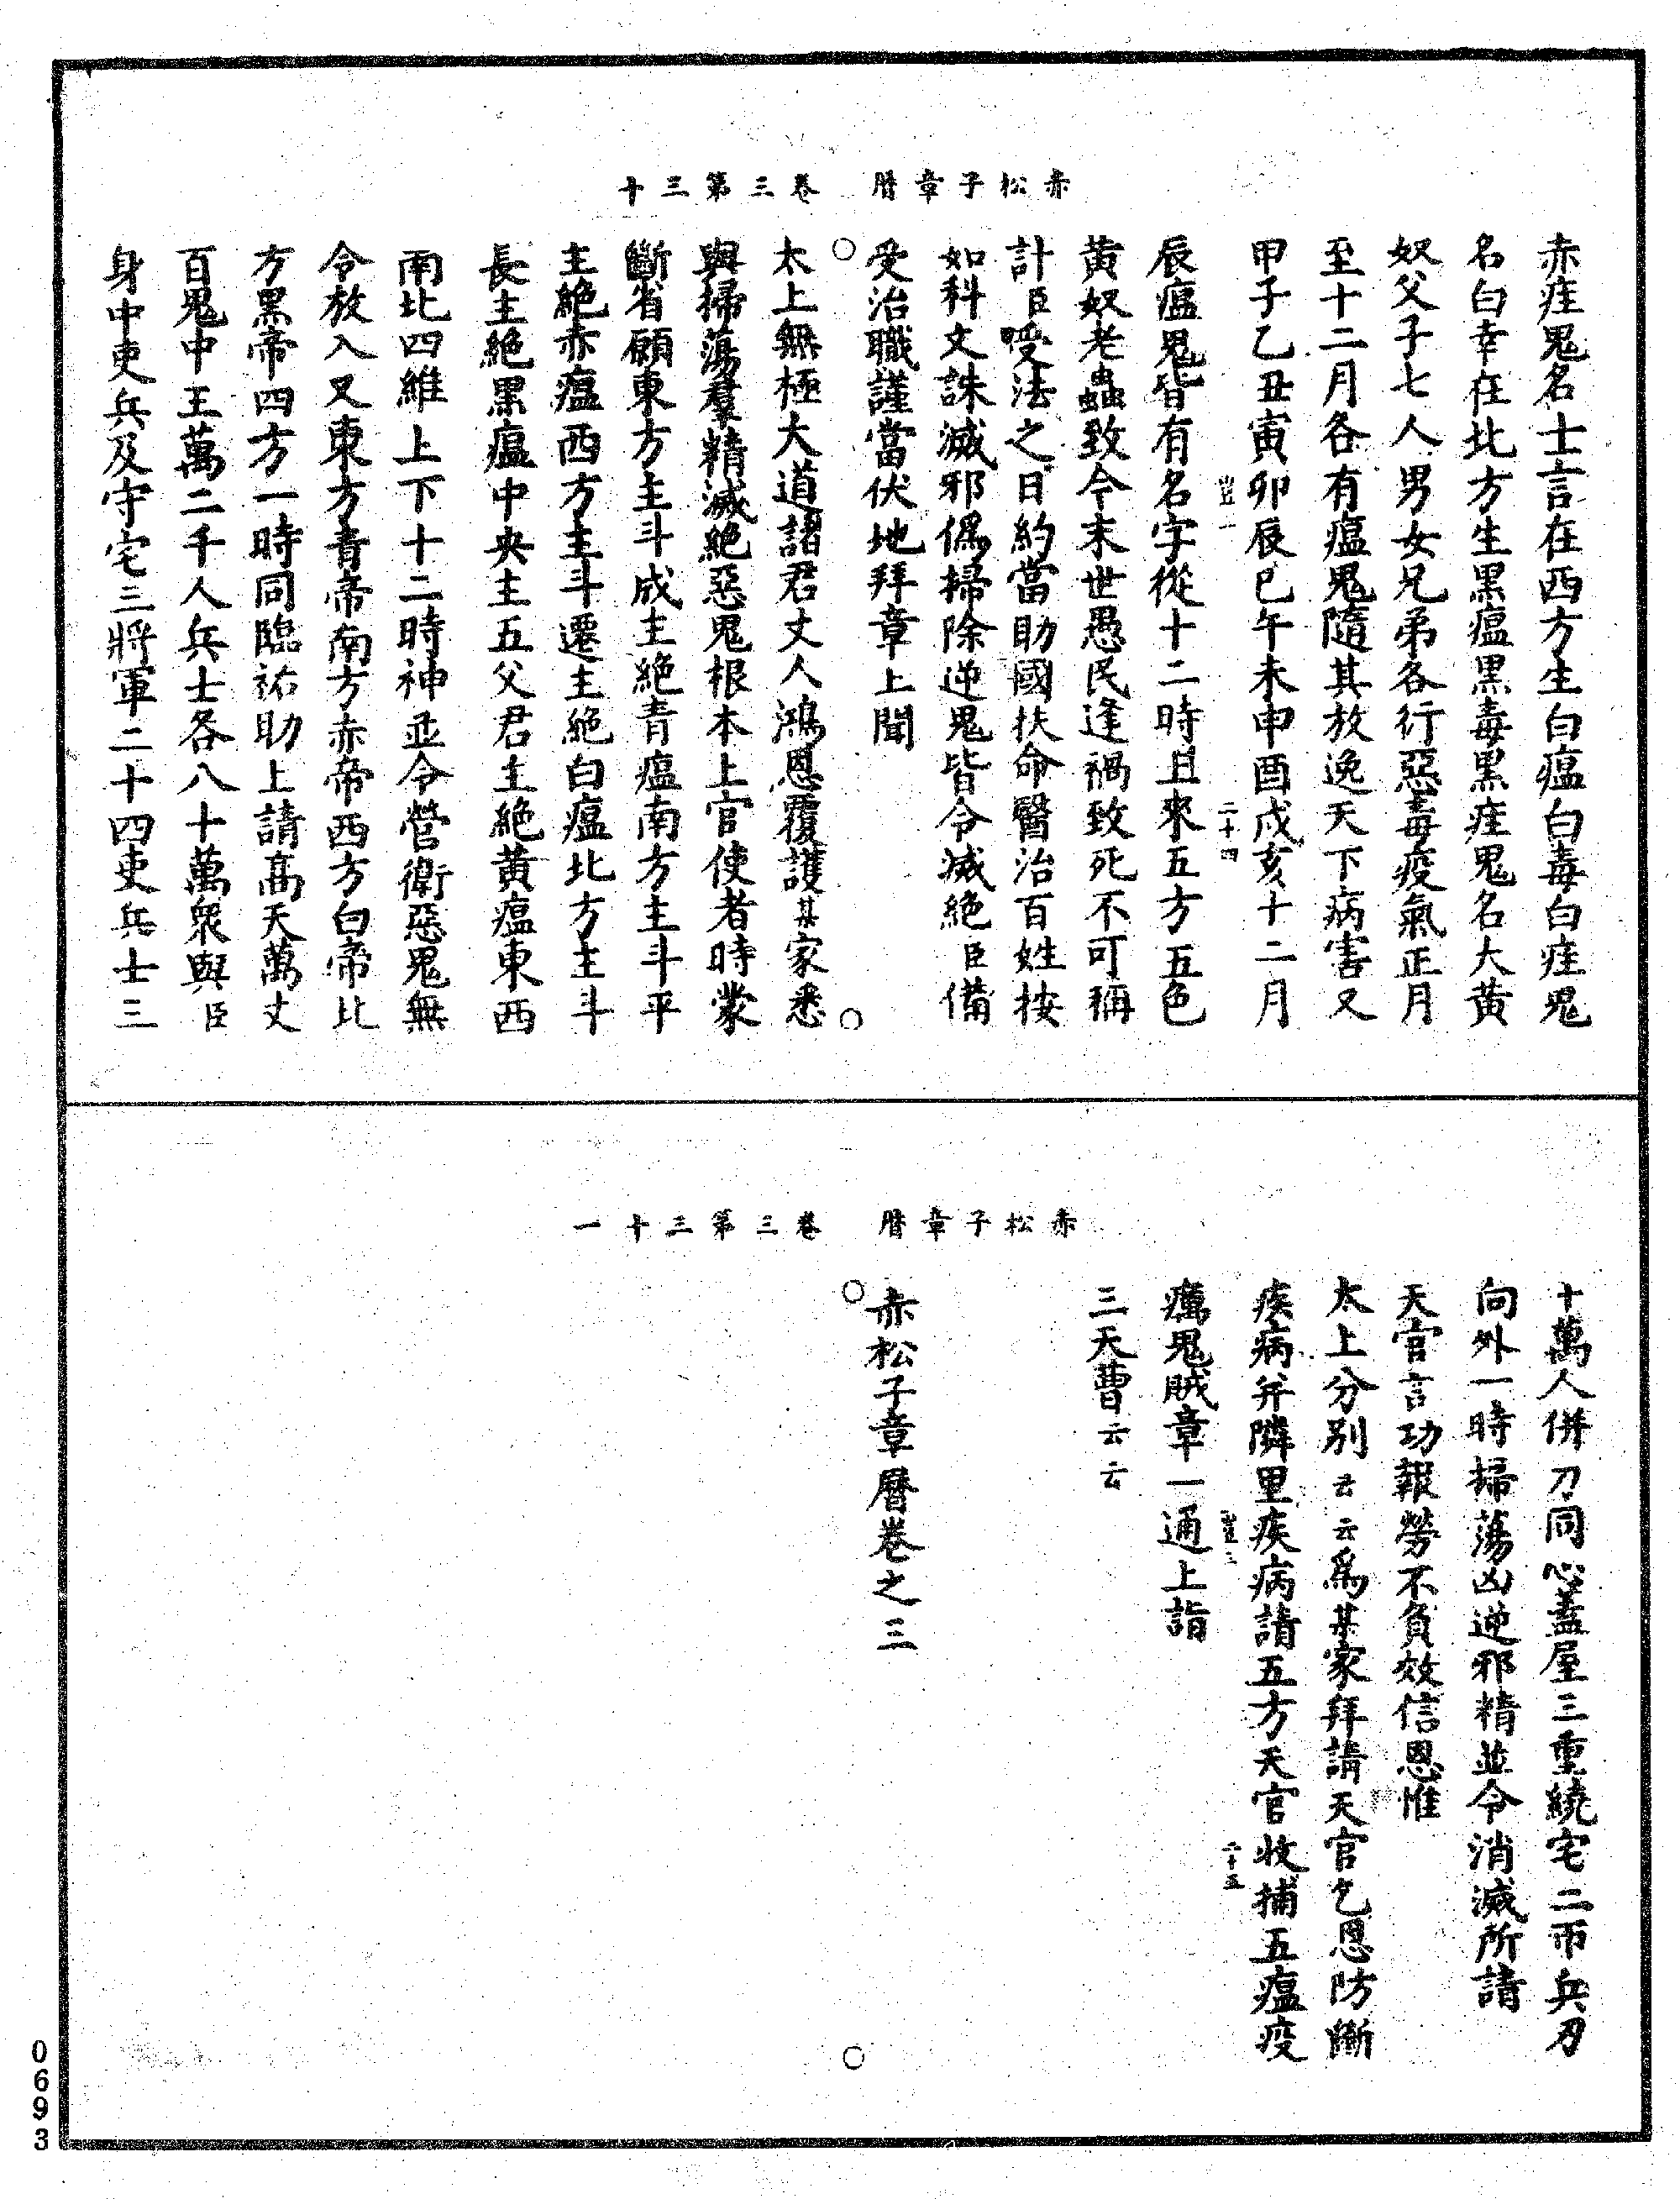 赤松子章曆　卷三第三十
赤疰鬼名士言在西方生白瘟白毒白疰鬼
名白幸在北方生黑瘟黑毒黑疰鬼名大黃
奴父子七人男女兄弟各行惡毒疫氣正月
至十二月各有瘟鬼隨其放逸天下病害又
甲子乙丑寅卯辰巳午未申酉戌亥十二月
豈一　二十四
辰瘟鬼皆有名字從十二時且來五方五色
黃奴老蟲致令末世愚民逢禍致死不可稱
計臣受法之日約當助國扶命醫治百姓按
如科文誅滅邪僞掃除逆鬼皆令滅絕臣備
受治職謹當伏地拜章上聞
太上無極大道諸君丈人鴻恩覆護某家悉
與掃蕩羣精滅絕惡鬼根本上官使者時蒙
斷省願東方主斗成主絕青瘟南方主斗平
主絕赤瘟西方主斗遷主絕白瘟北方主斗
長主絕黑瘟中央主五父君主絕黃瘟東西
南北四維上下十二時神並令營衛惡鬼無
令放入又東方青帝南方赤帝西方白帝北
方黑帝四方一時同臨祐助上請高天萬丈
百鬼中王萬二千人兵士各八十萬衆與臣
身中吏兵及守宅三將軍二十四吏兵士三
赤松子章曆　卷三第三十一
十萬人併刀同心蓋屋三重繞宅二帀兵刃
向外一時掃蕩凶逆邪精並令消滅所請
天官言功報勞不負效信恩惟
太上分别云云爲某家拜請天官乞恩防斷
疾病并隣里疾病請五方天官收捕五瘟疫
豈三　二十五
癘鬼賊章一通上詣
三天曹云云
赤松子章曆卷之三
0693